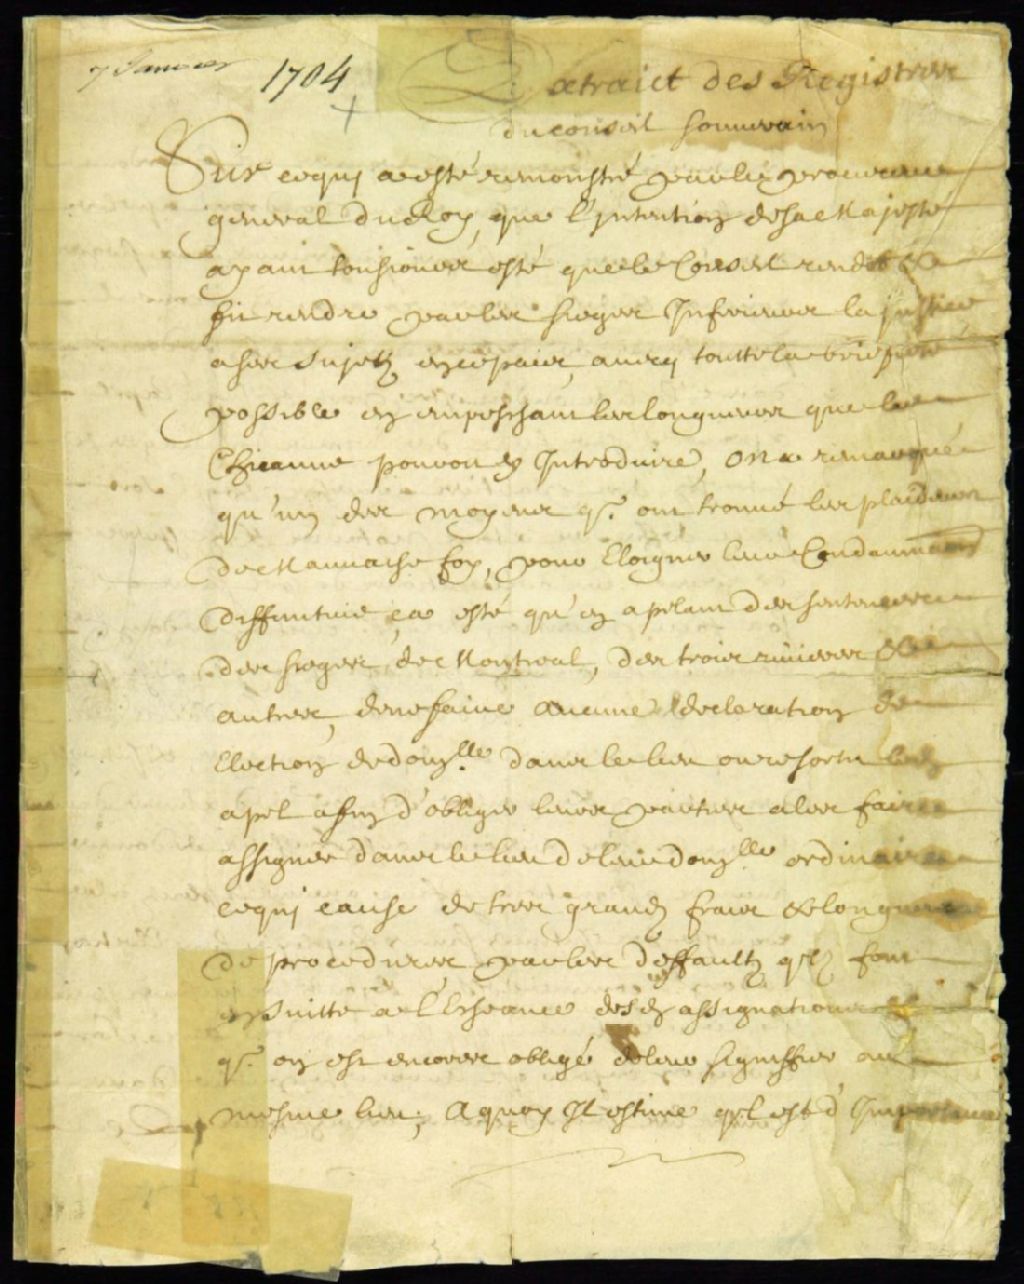 7 Janvier 1704
Extraict des Registres
du conseil souuerain
Sur ce qui a esté remonstré par le procureur
general du Roy, que l'Intention de sa Majesté
ayant tousiours esté que le Conseil rendit &
fit rendre par les sieges Inferieurs la justice
a ses sujets en ce païs, auec toutte la briefueté
possible en empeschant les longueurs que la
Chicanne pouroit y Introduire, on a remarqué
qu'un des moyens q. ont trouué les plaideurs
de Mauuaise foy, pour Eloigner leur Condamnaon
diffinitiue, ça esté qu'en apelant des sentences
des sieges de Montreal, des trois riuieres &
autres, de ne faire aucune declaration de
Election de domlle dans le lieu ou resortit led
apel afin d'obliger leurs parties a les faire
assigner dans le lieu de leur domlle ordinaire
ce qui cause de tres grands fraix & longueurs
de procedures par les deffaultz qlz font
ensuitte a l'Escheance desd assignations et
q. on est encorre obligé de leur signiffier au
mesme lieu; A quoy Il estime ql est d'Importance